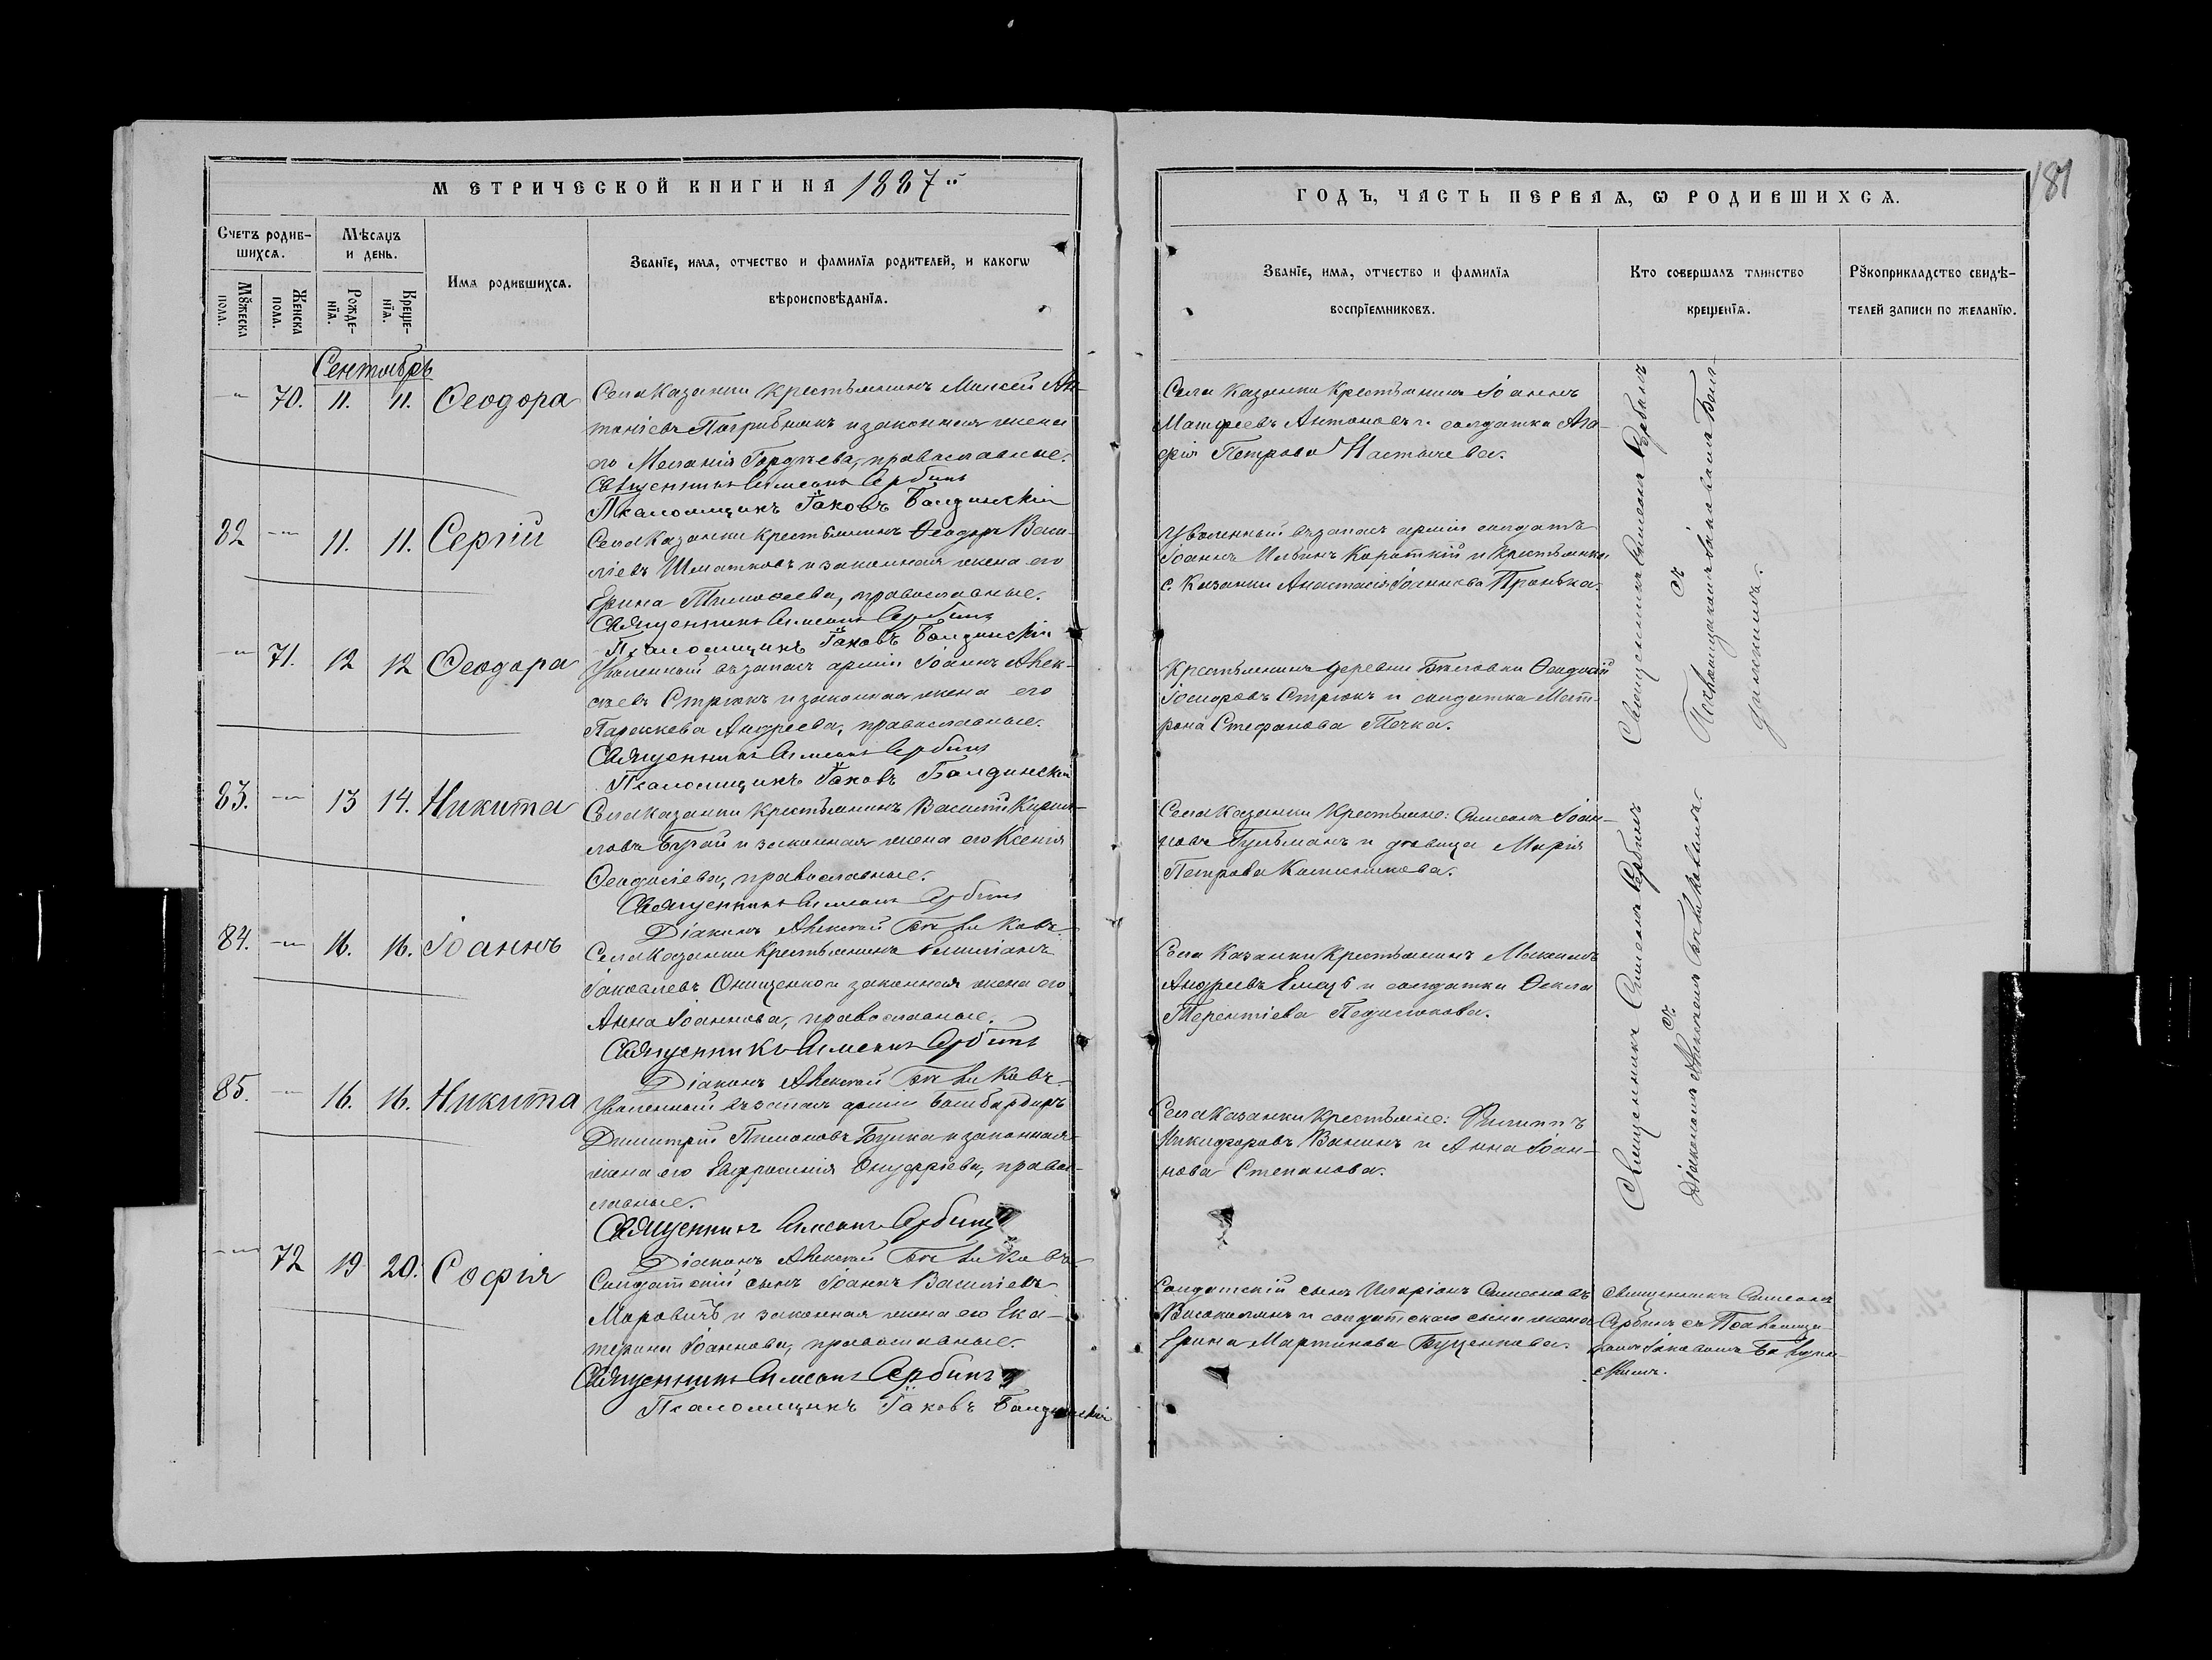 МЕТРИЧЕСКОЙ КНИГИ НА 1887й
ГОДЪ, ЧАСТЬ ПЕРВАЯ, Ѡ РОДИВШИХСЯ.
181
Счетъ родив-
шихсѧ.
Мꙋжеска
пола.
Женска
пола.
Мѣсѧцъ
и день.
Рожде-
нїѧ.
Креще-
нїѧ.
Имѧ родившихсѧ.
Званїе, имѧ, отчество и фамилїѧ родителей, и какогѡ
вѣроисповѣданїѧ.
Званїе, имѧ, отчество и фамилїѧ
воспрїемниковъ.
Кто совершалъ таинство
крещенїѧ.
Рꙋкоприкладство свидѣ-
телей записи по желанїю.
Сентябрь
70. 11. 11. Ѳеодора
Села Казанки крестьянинъ Моисей Ан-
тоніевъ и законная жена
его Меланія Гордѣева, православные.
Священникъ Симеонъ Сербинъ
Псаломщикъ Іаковъ Балдинскій
Села Казанки крестьянинъ Іоаннъ
Матѳеевъ Антоновъ и солдатка Ага-
фія Петрова
82 11. 11. Сергій
Села Казанки крестьянинъ Ѳеодоръ Васи-
ліевъ Шматковъ и законная жена его
Ерина Тимоѳеева, православные.
Священникъ Симеонъ Сербинъ
Псаломщикъ Іаковъ Балдинскій
Уволенный въ запасъ арміи солдатъ
Іоаннъ Ильинъ Короткій и крестьянка
с. Казанки Анастасія Іоаннова Пронька.
71. 12 12 Ѳеодора
Уволенный въ запасъ арміи Іоаннъ Алек-
сѣевъ Стрюкъ и законная жена его
Параскева Андреева, православные.
Священникъ Симеонъ Сербинъ
Псаломщикъ Іаковъ Балдинскій
Крестьянинъ деревни Ѳеодосій
Стрюкъ и солдатка Мат-
рона Стефанова Течка.
Священникъ Симеонъ Сербинъ
съ
Псаломщикомъ Іаковомъ Бал-
динскимъ.
83. 13 14. Никита
Села Казанки крестьянинъ Василій Кирил-
ловъ Бугай и законная жена его Ксенія
Ѳеодосіева, православные.
Священникъ Симеонъ Сербинъ
Діаконъ Алексѣй
Села Казанки крестьяне: Симеонъ Іоан-
новъ Гульманъ и дѣвица Марія
Петрова
84. 16. 16. Іоаннъ
Села Казанки крестьянинъ Емиліанъ
Іаковлевъ Онищенко и законная жена его
Анна Іоаннова, православные.
Священникъ Симеонъ Сербинъ
Діаконъ Алексѣй
Села Казанки крестьянинъ Максимъ
Андреевъ Емецъ и солдатка Ѳекла
Терентіева
85. 16. 16. Никита
Уволенный въ запасъ арміи бомбардиръ
Димитрій Пимоновъ Булка и законная
жена его Евфросинія Онуфріева, право-
славные.
Священникъ Симеонъ Сербинъ
Діаконъ Алексѣй
Села Казанки крестьяне: Филиппъ
Никифоровъ Ванинъ и Анна Іоан-
нова Степанова.
Священникъ Симеонъ Сербинъ
съ
Діакономъ Алексѣемъ
72 19 20. Софія
Солдатскій сынъ Іоаннъ Василіевъ
Маровичъ и законная жена его Ека-
терина Іоаннова, православные.
Священникъ Симеонъ Сербинъ
Псаломщикъ Іаковъ Балдинскій
Солдатскій сынъ Иларіонъ Симеоновъ
и солдатскаго сына жена
Ерина Мартинова Буценкова.
Священникъ Симеонъ
Сербинъ съ Псаломщи-
комъ Іаковомъ Балдин-
скимъ.